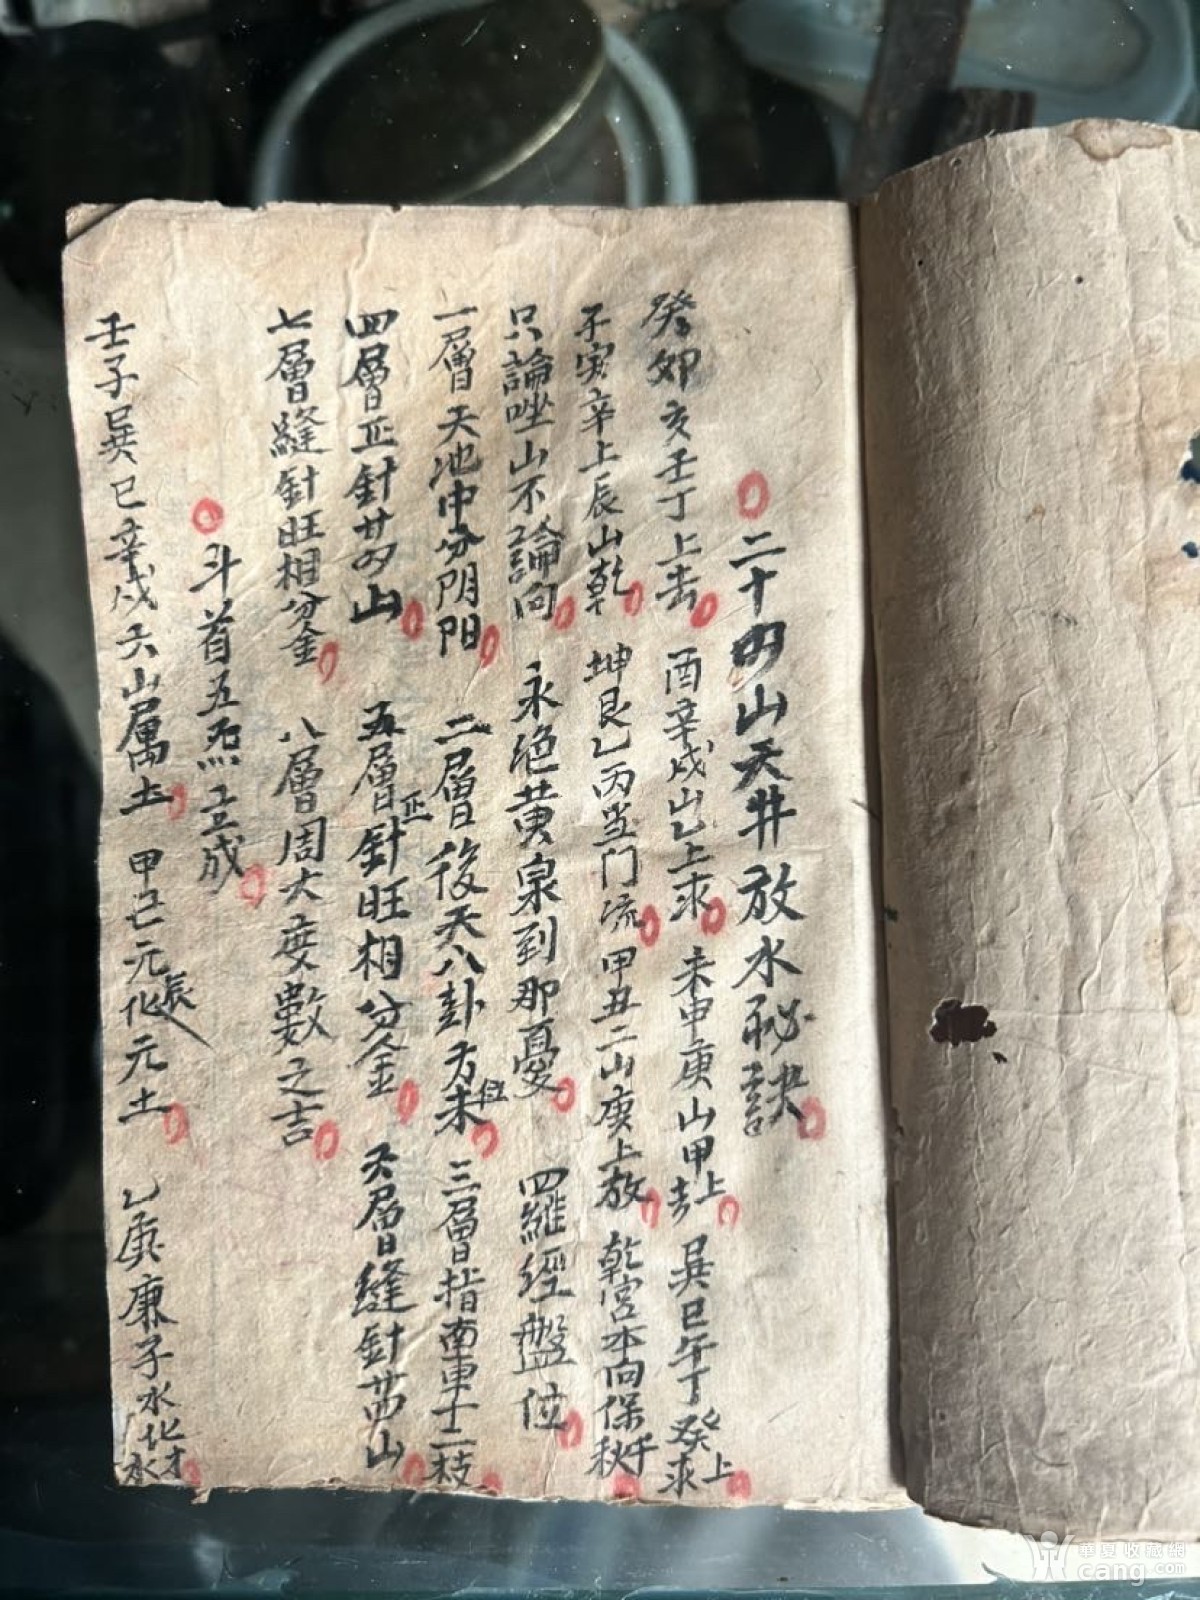 二十四山天井放水秘訣
癸卯亥壬丁上去 酉辛戌山乙上求 未申庚山甲上去 巽巳午丁癸上求
子寅辛上辰山乾 坤艮乙丙当门流 甲丑二山庚上放 乾宮本向保千秋
只論坐山不論向 永绝黄泉到那憂 四羅經盤位
一層天池中分阴阳 二層後天八卦方位未 三層指南車十二枝
四層正針廿四山 五層正針旺相分金 六層縫針廿四山
七層縫針旺相分金 八層周天度數之吉
斗首五炁立成
壬子巽巳辛戌六山属土 甲己元辰化元土 乙庚廉子水化才水
華夏收藏網
cang.com